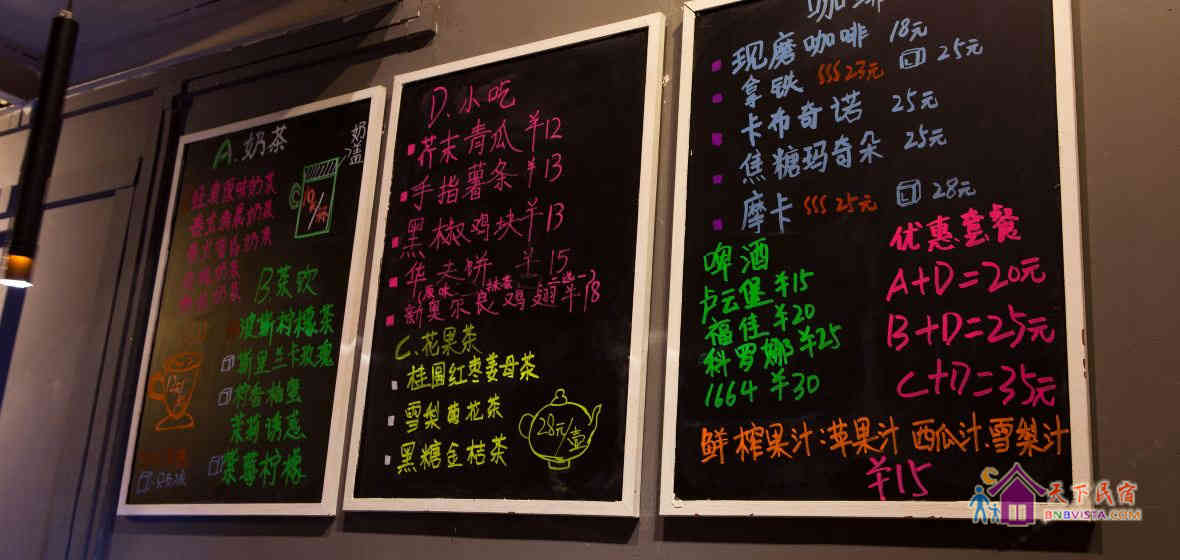 A.奶茶
奶盖
经典原味奶茶
10/杯
B.茶饮
波斯柠檬茶
斯里兰卡玫瑰
柠香柚蜜
茉莉诱惑
紫莓柠檬
D.小吃
芥末青瓜¥12
手指薯条¥13
黑椒鸡块¥13
华夫饼 ¥15
原味
新奥尔良鸡翅¥18
C.花果茶
桂圆红枣姜母茶
雪梨菊花茶
黑糖金桔茶
28元/壶
咖啡
现磨咖啡 18元
拿铁 23元 25元
卡布奇诺 25元
焦糖玛奇朵 25元
摩卡 25元 28元
啤酒
卢云堡¥15
福佳¥20
科罗娜¥25
1664 ¥30
优惠套餐
A+D=20元
B+D=25元
C+D=35元
鲜榨果汁:苹果汁 西瓜汁.雪梨汁
¥15
天下民宿
BNBVISTA.COM